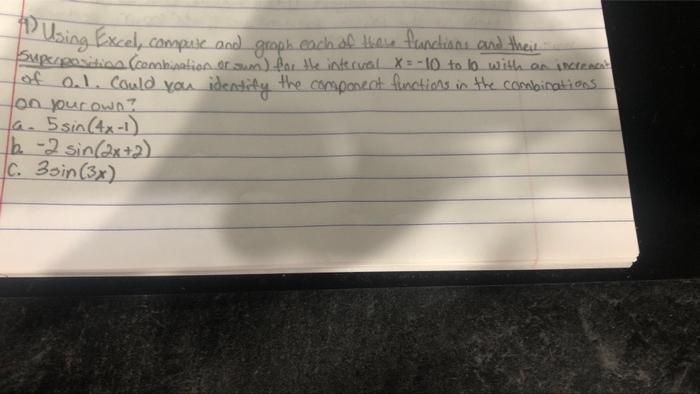 9) Using Excel, compute and graph each of these functions and their
superposition (combination or sum) for the interval x = -10 to 10 with an increment
of 0.1. Could you identify the component functions in the combinations
on your own?
a. 5 sin(4x-1)
b. -2 sin(2x+2)
c. 3sin(3x)